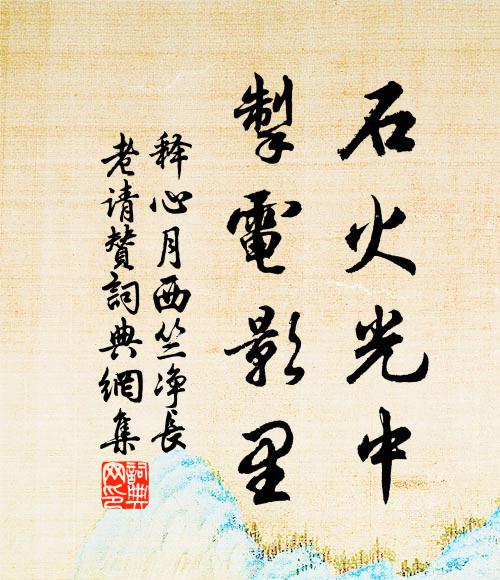 石火光中
掣電影里
释心月西竺净长
老请赞詞典網集
詞典
网印